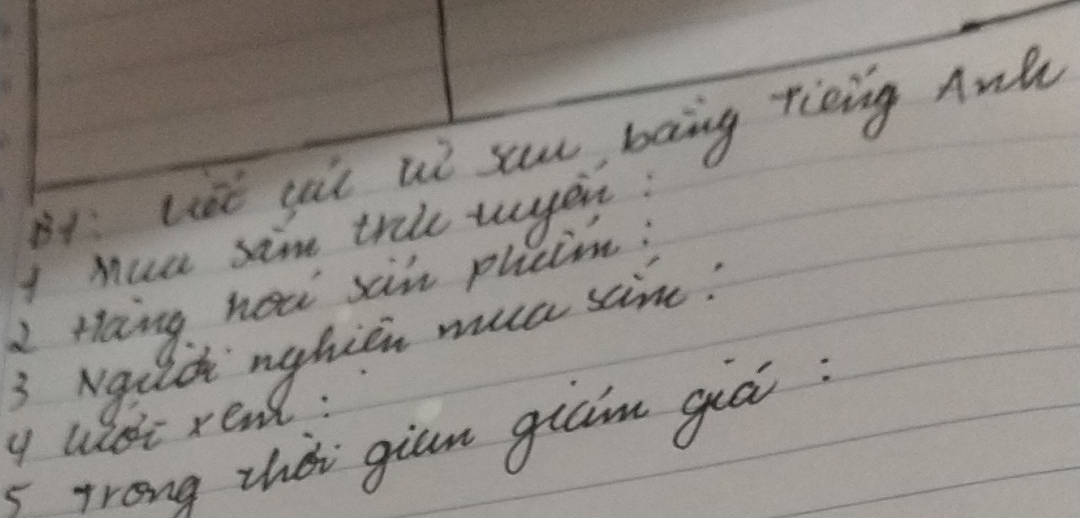 B1: Viết các từ sau bằng Tiếng Anh
1 Mua sắm trực tuyến :
2 Hàng hoá sản phẩm :
3 Người nghiện mua sắm :
4 lướt xem :
5 Trong thời gian giảm giá :